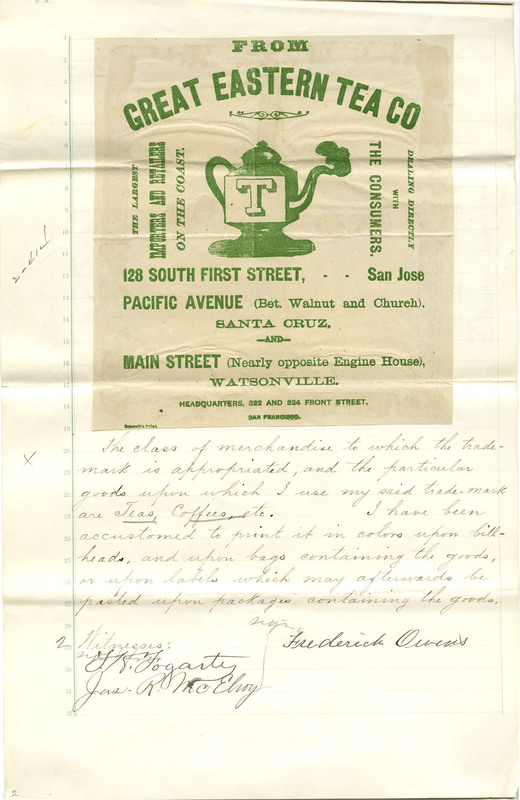 FROM
GREAT EASTERN TEA CO
THE LARGEST
IMPORTERS AND RETAILERS
ON THE COAST.
T
DEALING DIRECTLY
WITH
THE CONSUMERS.
128 SOUTH FIRST STREET, - - San Jose
PACIFIC AVENUE (Bet. Walnut and Church),
SANTA CRUZ,
—AND—
MAIN STREET (Nearly opposite Engine House),
WATSONVILLE.
HEADQUARTERS, 322 AND 324 FRONT STREET,
SAN FRANCISCO.
The class of merchandise to which the trade-
mark is appropriated, and the particular
goods upon which I use my said trade-mark
are Teas, Coffees, etc. I have been
accustomed to print it in colors upon bill-
heads, and upon bags containing the goods,
or upon labels which may afterwards be
pasted upon packages containing the goods.
Frederick Owens
2 Witnesses:
Fogarty
Jas. R. McElroy
X
2